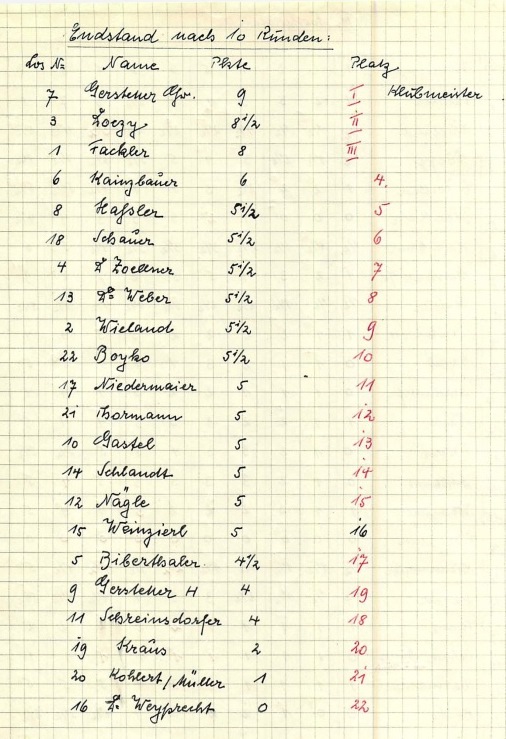 Endstand nach 10 Runden:
Los No Name Pkte Platz
7 Gerstener Chr. 9 I Klubmeister
3 Loczy 8 1/2 II
1 Fackler 8 III
6 Kainzbauer 6 4.
8 Haßler 5 1/2 5
18 Schauer 5 1/2 6
4 Dr Zoellner 5 1/2 7
13 Dr. Weber 5 1/2 8
2 Wieland 5 1/2 9
22 Boyko 5 1/2 10
17 Niedermaier 5 11
21 Thormann 5 12
10 Gastel 5 13
14 Schlandt 5 14
12 Nägle 5 15
15 Weinzierl 5 16
5 Biberthaler 4 1/2 17
9 Gerstener H 4 19
11 Schreinsdorfer 4 18
19 Kraus 2 20
20 Kohlert/Müller 1 21
16 Dr. Weyprecht 0 22